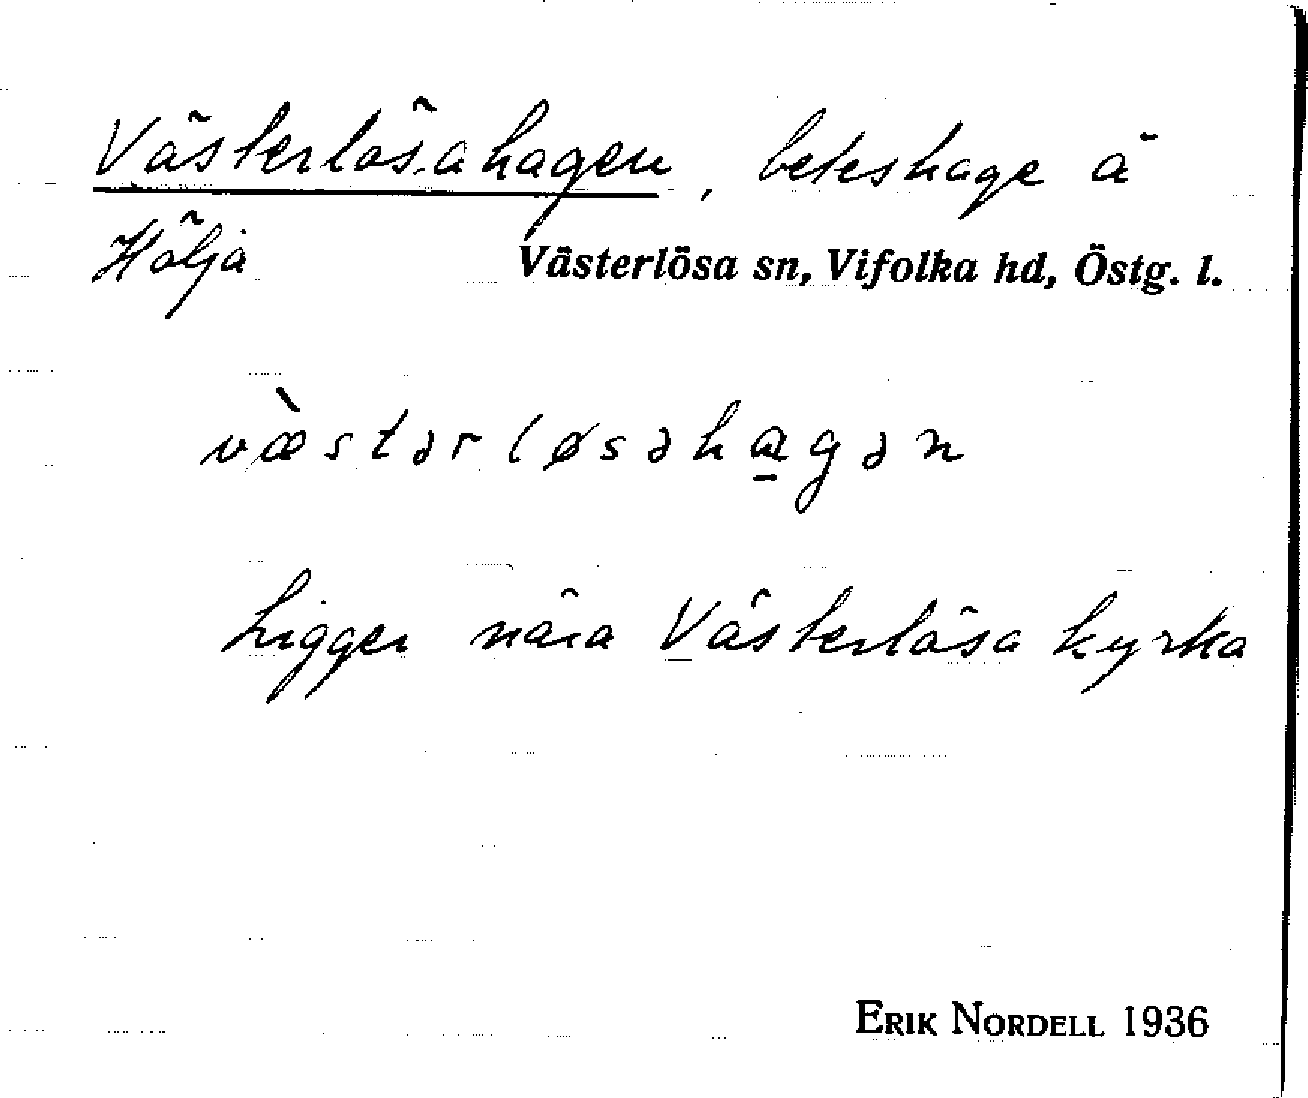 Västerlösahagen, beteshage å
Hölja Västerlösa sn, Vifolka hd, Östg. l.
væ̀stərløsəha̱gən
Ligger nära Västerlösa kyrka
ERIK NORDELL 1936